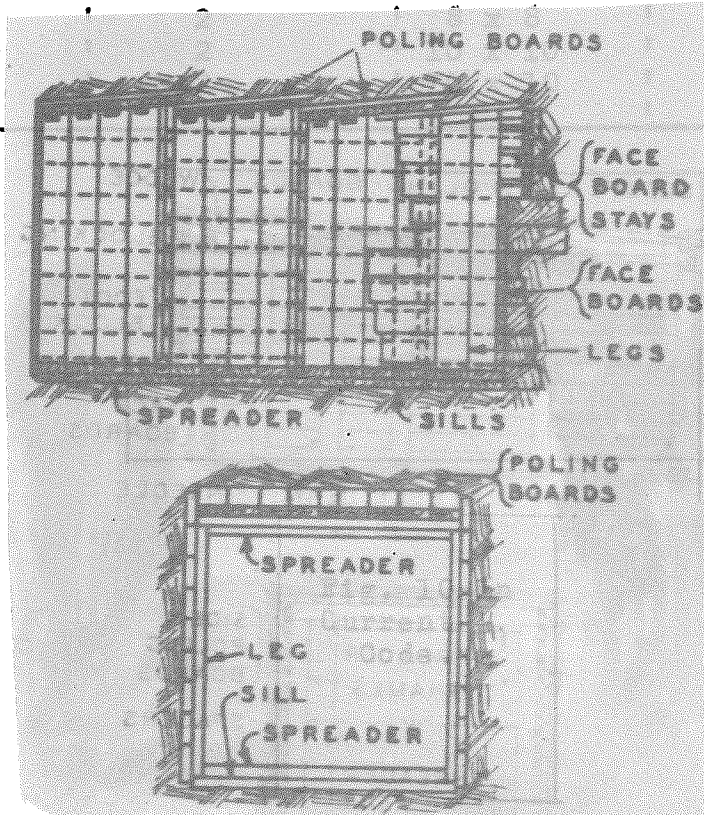 POLING BOARDS
FACE
BOARD
STAYS
FACE
BOARDS
LEGS
SPREADER
SILLS
POLING
BOARDS
SPREADER
Fig. 10
Current
LEG
Code
SILL
SPREADER